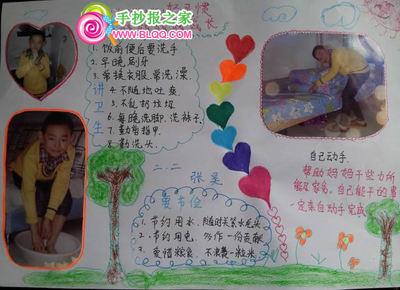 手抄报之家
WWW.BLQQ.COM
成长
讲卫生
1. 饭前便后要洗手
2. 早晚刷牙
3. 常换衣服.常洗澡
4. 不随地吐痰
5. 不乱扔垃圾
6. 每晚洗脚.洗袜子
7. 勤剪指甲
8. 勤洗头.
二.二 张昊
要节俭
1. 节约用水,随时关紧水龙头
2. 节约用电, 作一份贡献
3. 爱惜粮食 不浪费一粒米
自己动手
帮助妈妈干些力所
能及家务,自己能干的事
一定亲自动手完成